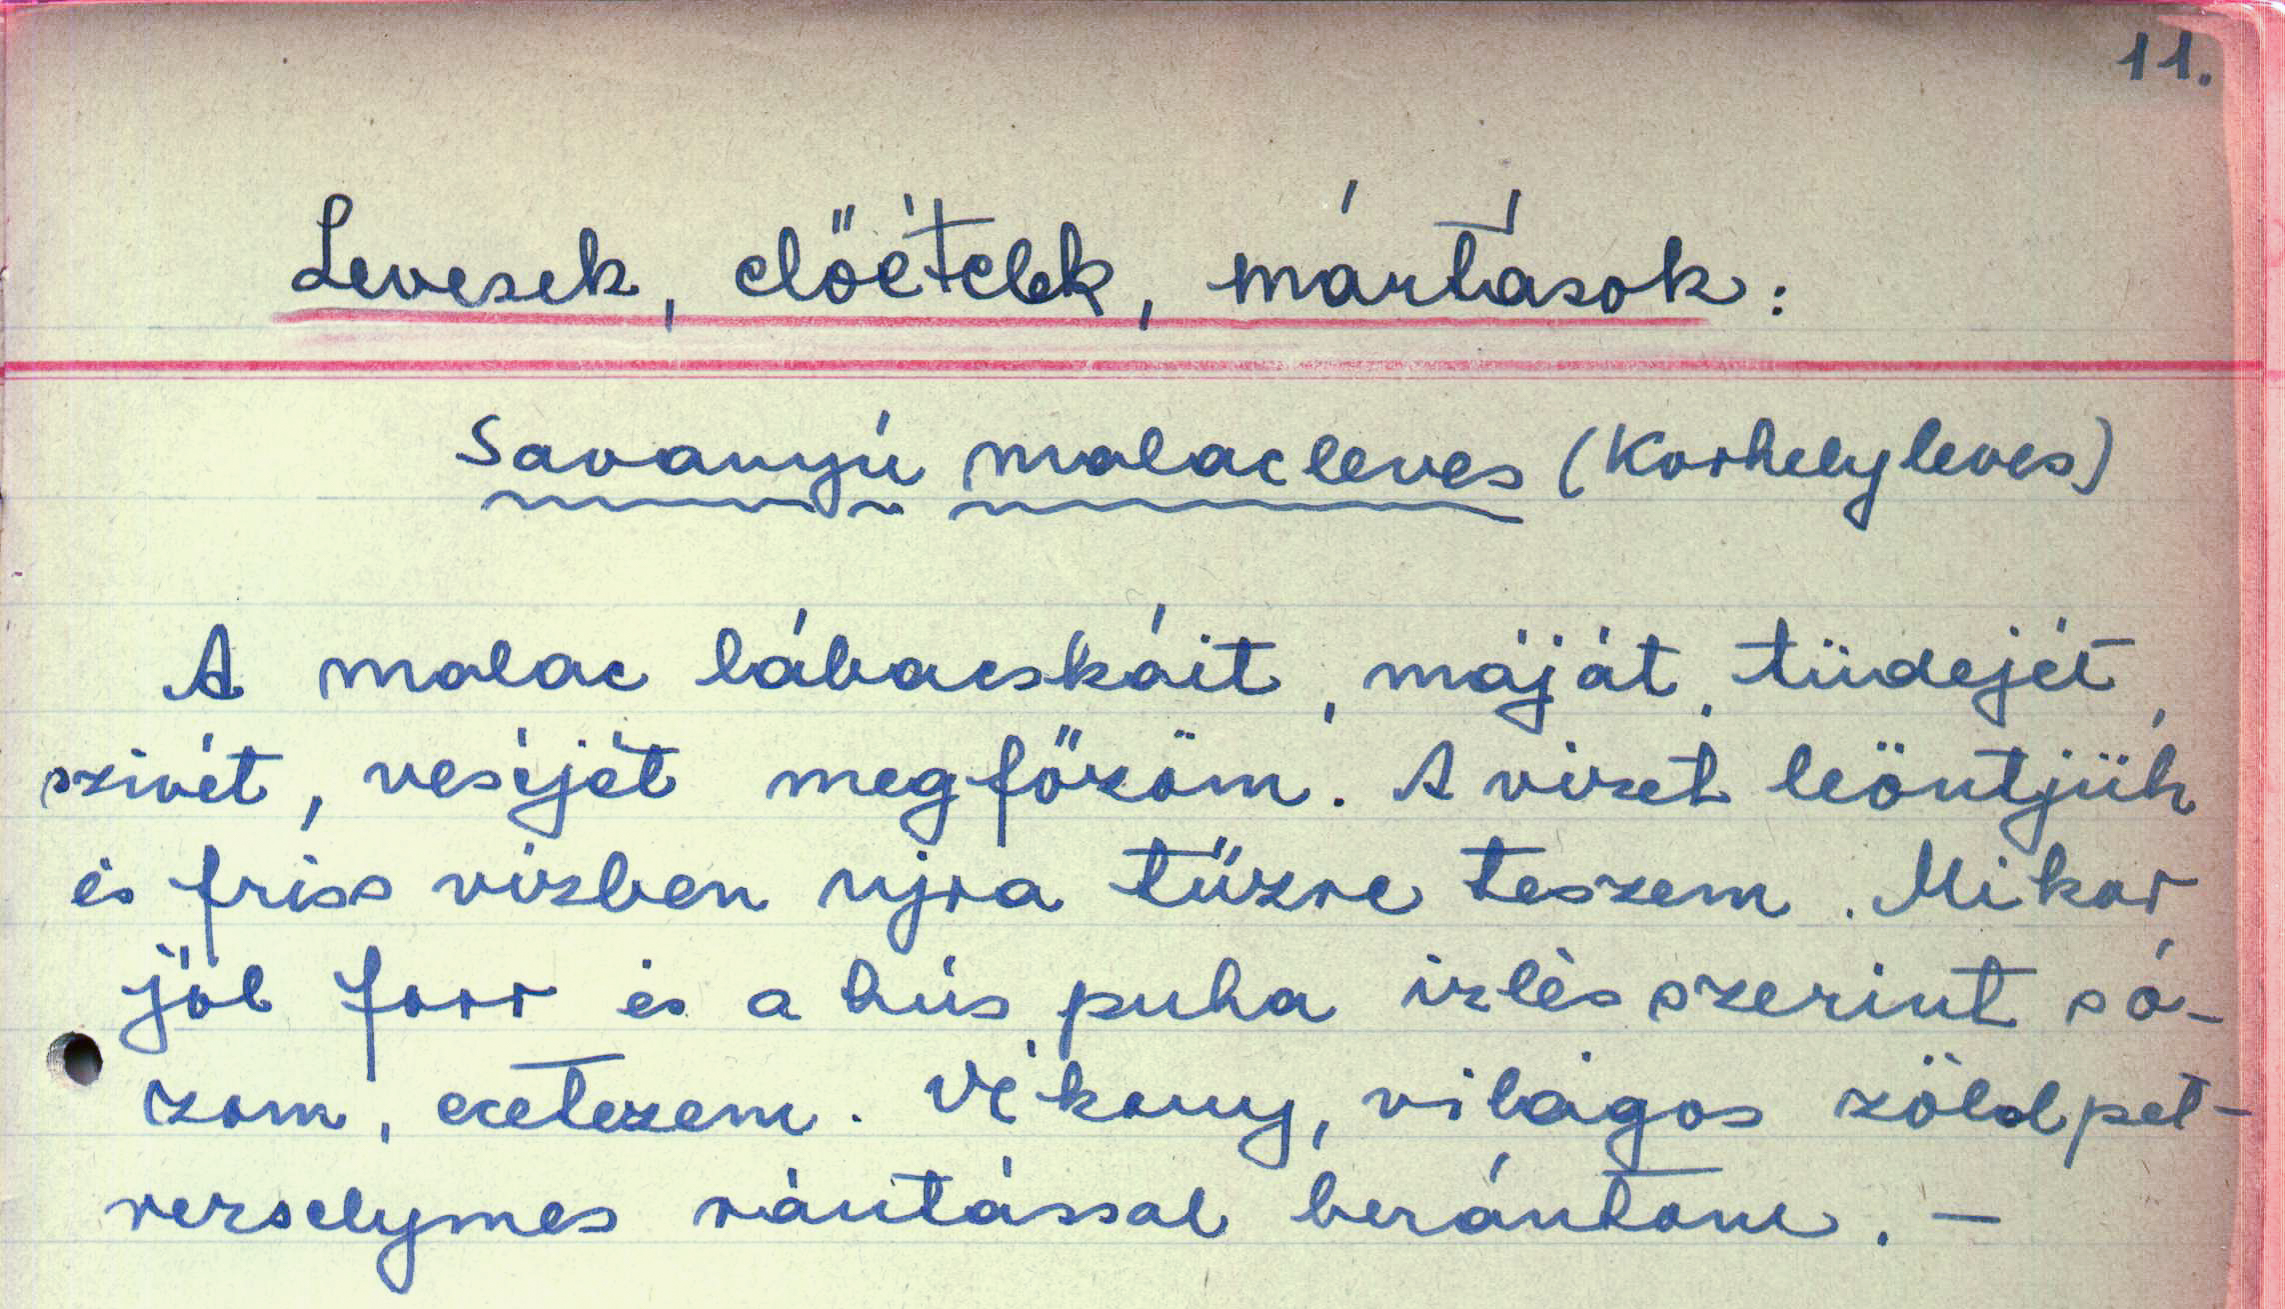 11.
Levesek, előételek, mártások:
Savanyú malacleves (Korhelyleves)
A malac lábacskáit, máját, tüdejét,
szivét, veséjét megfőzöm. A vizet leöntjük
és friss vizben ujra tűzre teszem. Mikor
jól forr és a hús puha izlés szerint só-
zom, ecetezem. Vékony, világos zöldpet-
rerselymes rántással berántom. -